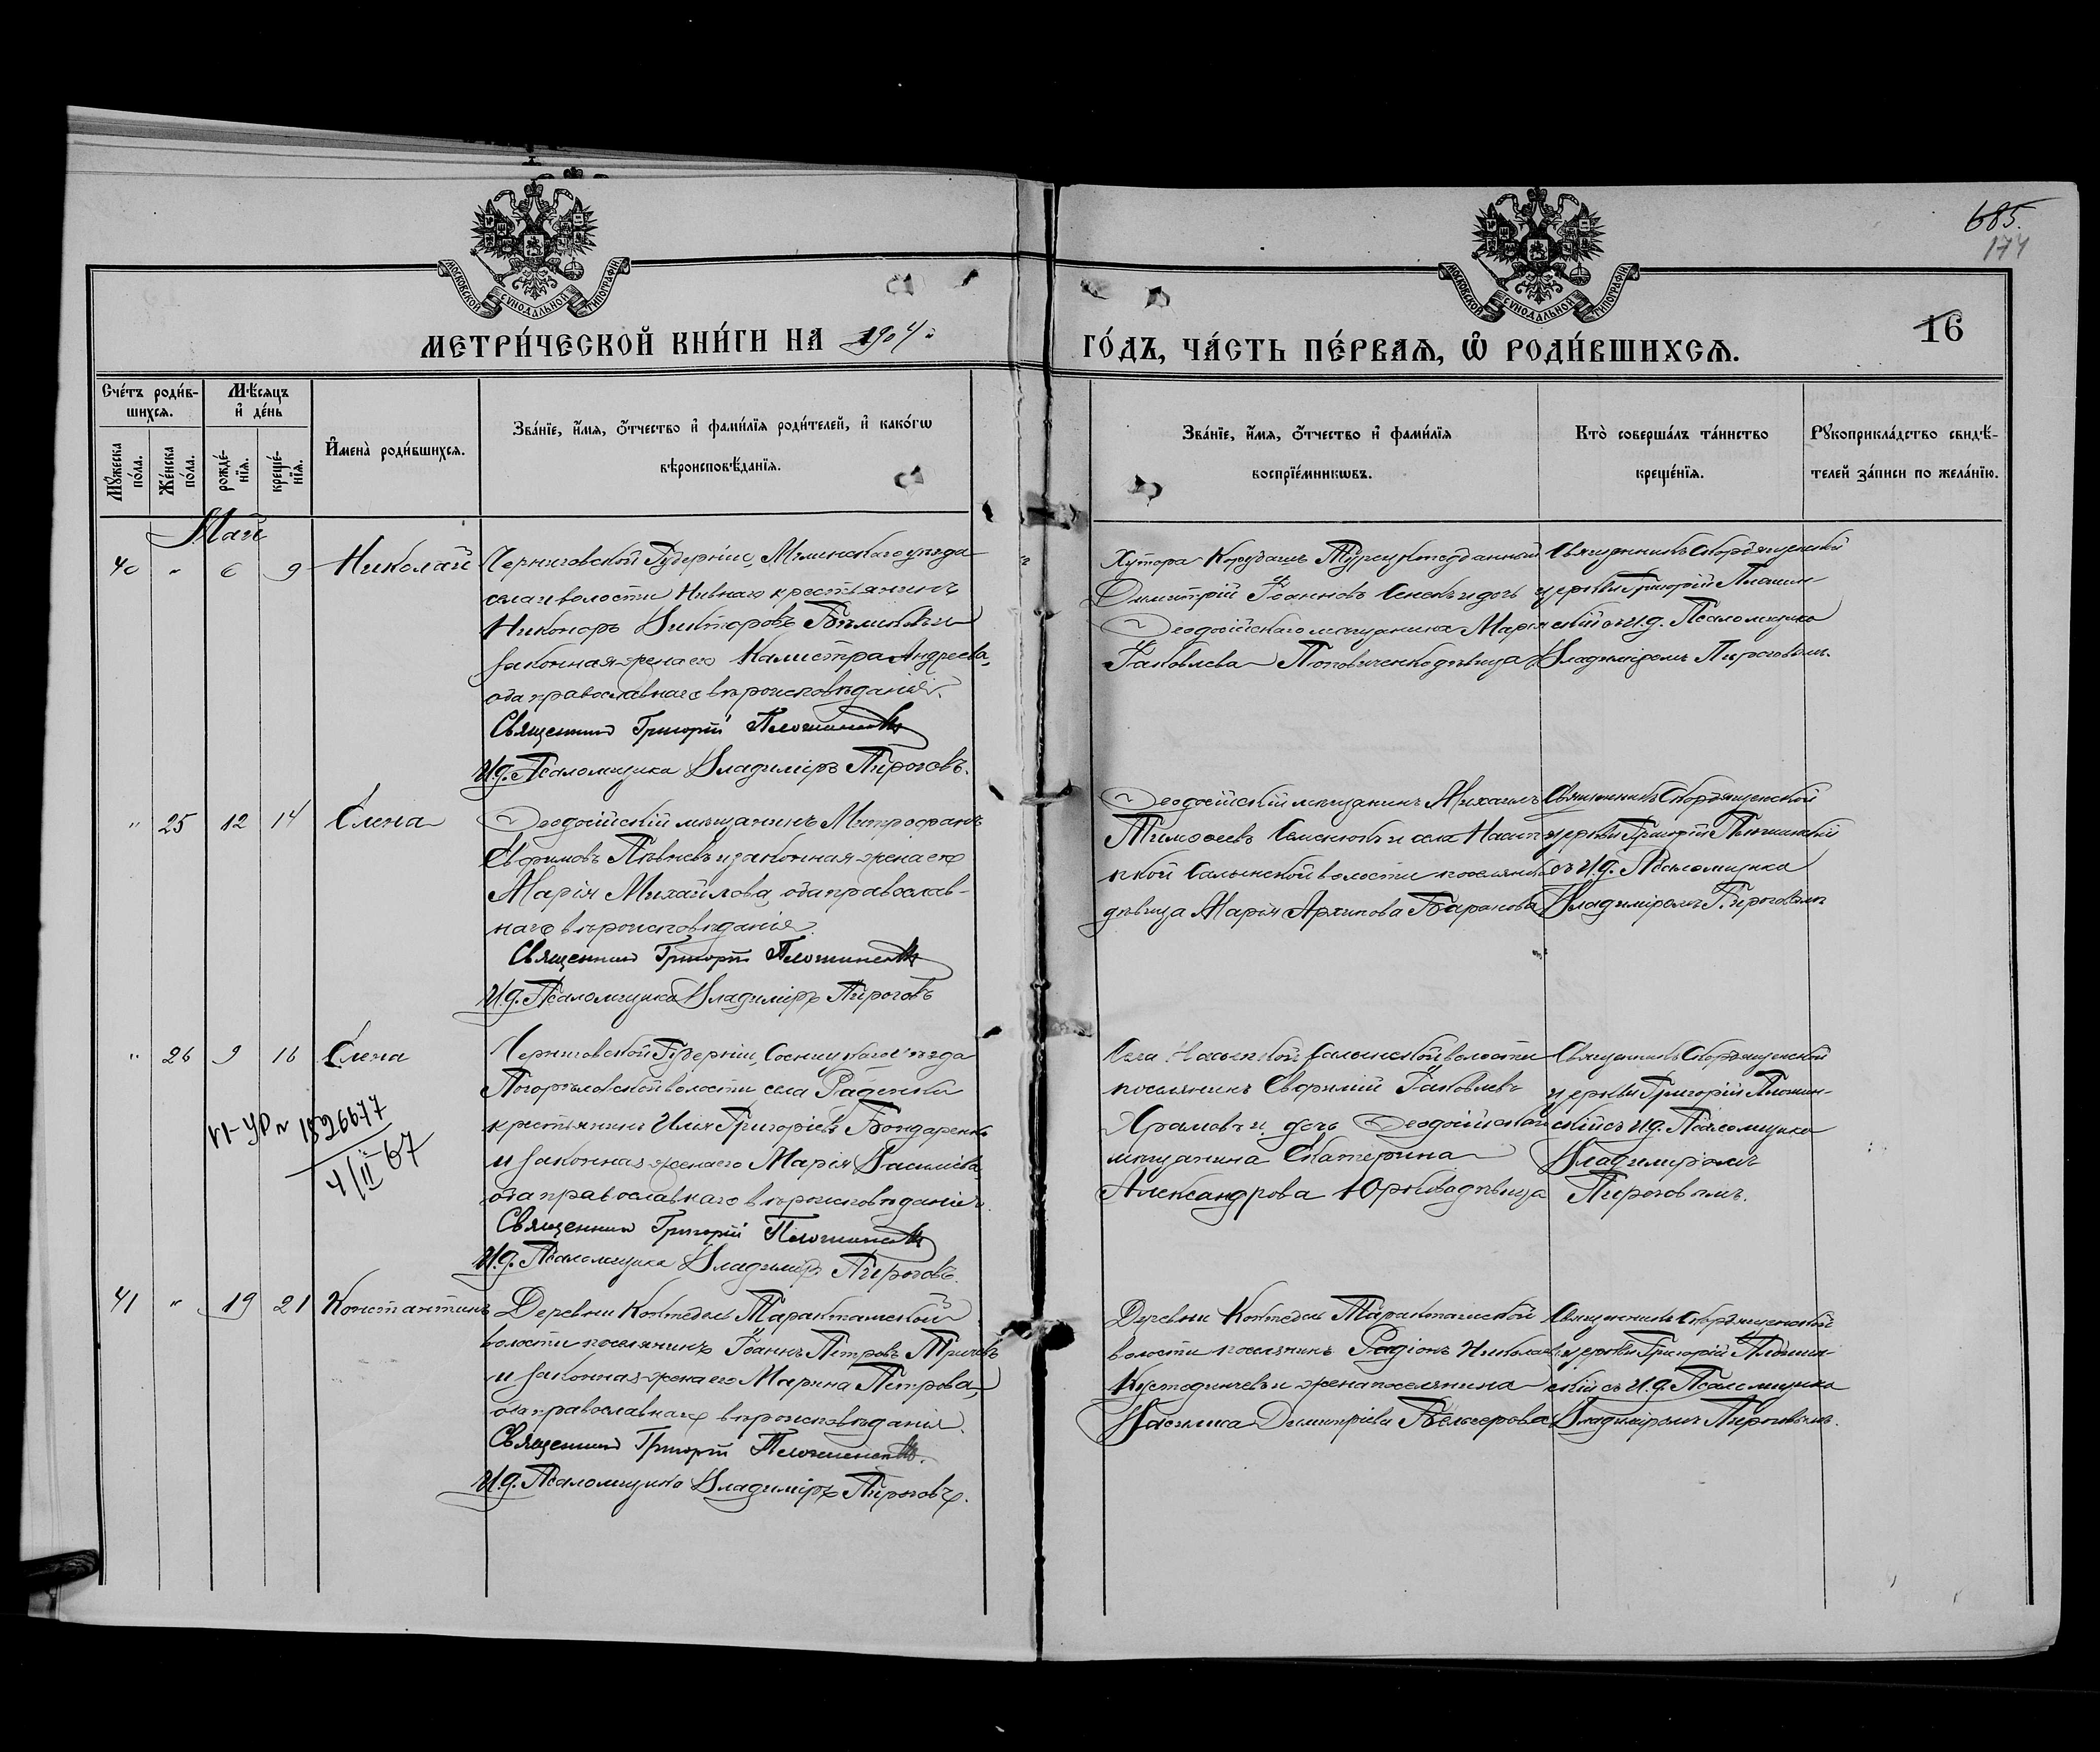 685.
174
16
МОСКОВСКОЙ СѴНОДАЛЬНОЙ ТИПОГРАФІИ
МОСКОВСКОЙ СѴНОДАЛЬНОЙ ТИПОГРАФІИ
МЕТРИ́ЧЕСКОЙ КНИ́ГИ НА 1904й
ГО́ДЪ, ЧА́СТЬ ПЕ́РВАѦ, Ѡ҆ РОДИ́ВШИХСѦ.
Сче́тъ роди́в-
шихсѧ.
Мꙋ́жеска по́ла.
Же́нска по́ла.
Мѣ́сѧцъ
и҆ де́нь
рожде́-
нїѧ.
креще́-
нїѧ.
И҆мена̀ роди́вшихсѧ.
Зва́нїе, и҆́мѧ, ѻ҆́тчество и҆ фами́лїѧ роди́телей, и҆ како́гѡ
вѣроисповѣ́данїѧ.
Зва́нїе, и҆́мѧ, ѻ҆́тчество и҆ фами́лїѧ
воспрїе́мникѡвъ.
Кто̀ соверша́лъ та́инство
креще́нїѧ.
Рꙋкоприкла́дство свидѣ́-
телей за́писи по жела́нїю.
Май
40 " 6 9 Николай
Черниговской Губерніи, Мглинскаго уѣзда
села и волости Нивнаго крестьянинъ
Никоноръ Викторовъ и
законная жена его Калистра Андреева,
оба православнаго вѣроисповѣданія.
Священникъ Григорій
И.д. Псаломщика Владиміръ Пироговъ.
Хутора Турецкоподданный
Димитрій Іоанновъ и дочь
Ѳеодосійскаго мѣщанина Марія
Іаковлева Поповиченко дѣвица
Священникъ Скорбященской
церкви Григорій
скій съ И.д. Псаломщика
Владиміромъ Пироговымъ.
" 25 12 14 Елена
Ѳеодосійскій мѣщанинъ Митрофанъ
Евфимовъ Пѣвневъ и законная жена его
Марія Михайлова, оба православ-
наго вѣроисповѣданія.
Священникъ Григорій
И.д. Псаломщика Владиміръ Пироговъ
Ѳеодосійскій мѣщанинъ Михаилъ
Тимоѳеевъ Семенютъ и села Насып-
ной Салынской волости поселянка
дѣвица Марія Архипова Баранова
Священникъ Скорбященской
церкви Григорій
съ И.д. Псаломщика
Владиміромъ Пироговымъ
" 26 9 16 Елена
VI-УР № 1826677
4/II 67
Черниговской Губерніи, Сосницкаго уѣзда
Погорѣловской волости, села Радички
крестьянинъ Илія Григоріевъ Бондаренко
и законная жена его Марія Василіева,
оба православнаго вѣроисповѣданія.
Священникъ Григорій
И.д. Псаломщика Владиміръ Пироговъ.
Села Насыпной Салынской волости
поселянинъ Евфимій Іаковлевъ
Храмовъ и дочь Ѳеодосійскаго
мѣщанина Екатерина
Александрова Юрьева дѣвица
Священникъ Скорбященской
церкви Григорій
скій съ И.д. Псаломщика
Владиміромъ
Пироговымъ.
41 " 19 21 Константинъ
Деревни Коктебель Таракташской
волости поселянинъ Іоаннъ Петровъ
и законная жена его Марина Петрова,
оба православнаго вѣроисповѣданія.
Священникъ Григорій
И.д. Псаломщика Владиміръ Пироговъ.
Деревни Коктебель Таракташской
волости поселянинъ Родіонъ Николаевъ
Кустодинчевъ и жена поселянина
Василика Димитріева
Священникъ Скорбященской
церкви Григорій
скій съ И.д. Псаломщика
Владиміромъ Пироговымъ.